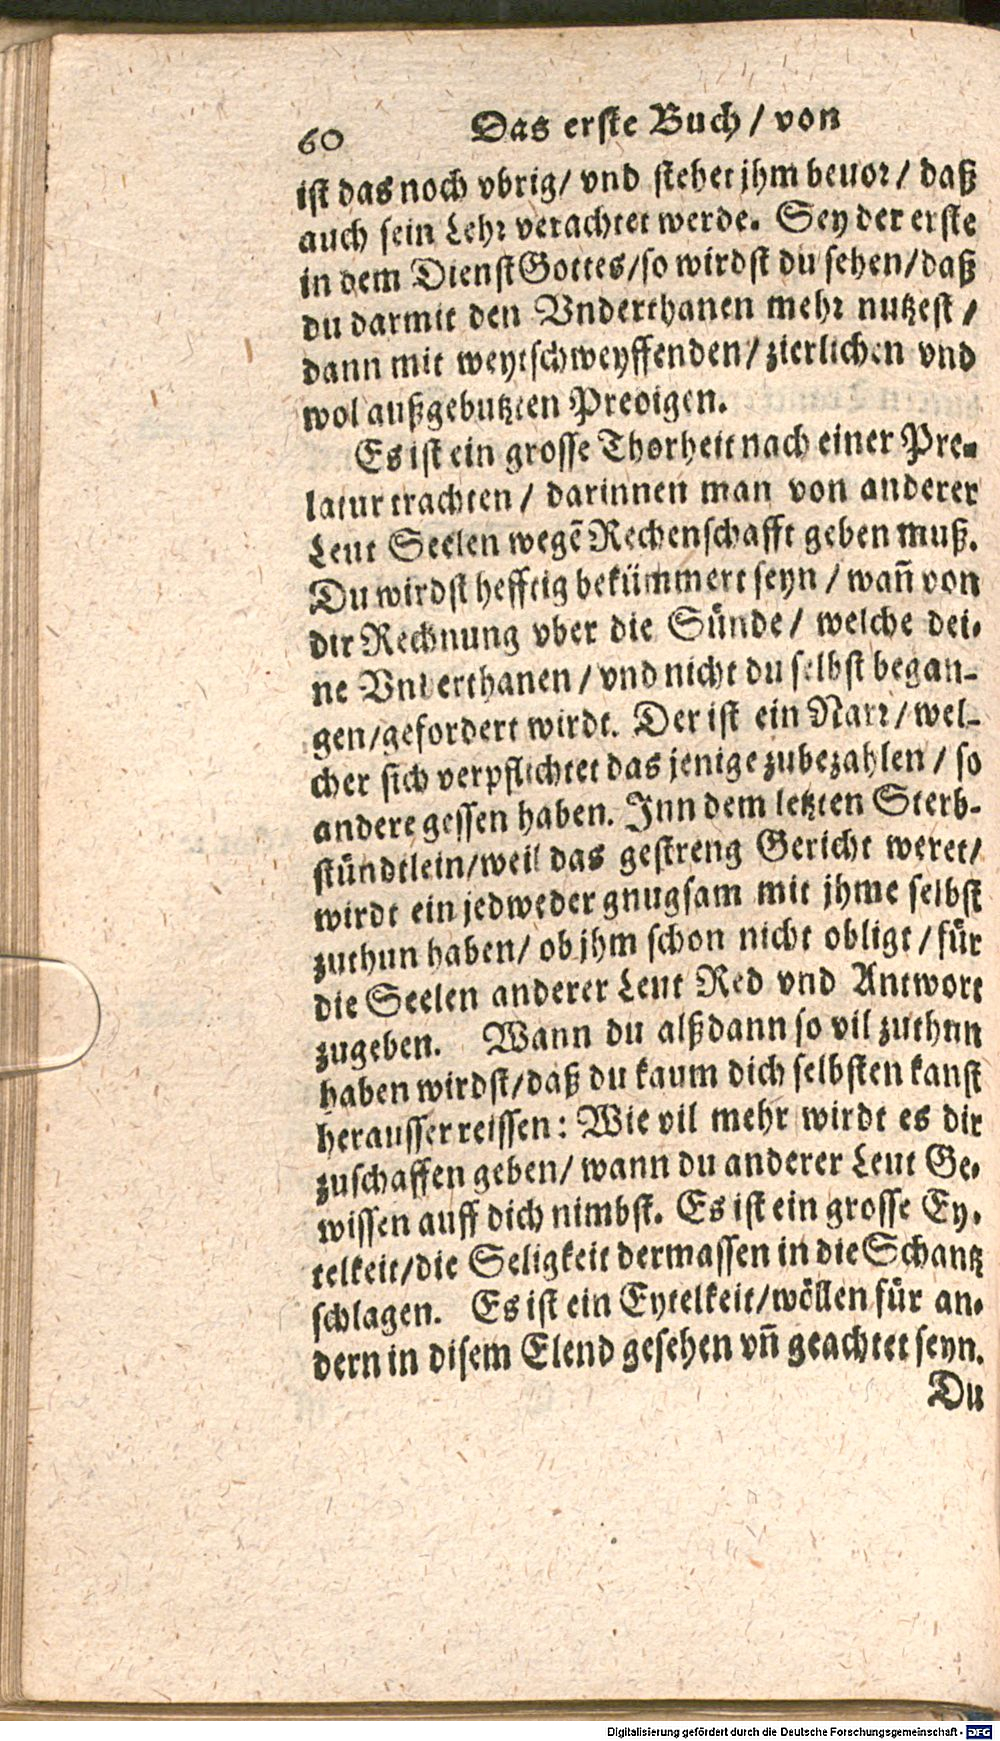 60 Das erste Buch / von
ist das noch vbrig / vnd stehet jhm beuor / daß
auch sein Lehr verachtet werde. Sey der erste
in dem Dienst Gottes / so wirdst du sehen / daß
du darmit den Vnderthanen mehr nutzest /
dann mit weytschweyffenden / zierlichen vnd
wol außgebutzten Predigen.
Es ist ein grosse Thorheit nach einer Pre-
latur trachten / darinnen man von anderer
Leut Seelen wegẽ Rechenschafft geben muß.
Du wirdst hefftig bekümmert seyn / wañ von
dir Rechnung vber die Sünde / welche dei-
ne Vnderthanen / vnd nicht du selbst began-
gen / gefordert wirdt. Der ist ein Narr / wel-
cher sich verpflichtet das jenige zubezahlen / so
andere gessen haben. Inn dem letzten Sterb-
stündtlein / weil das gestreng Gericht weret /
wirdt ein jedweder gnugsam mit jhme selbst
zuthun haben / ob jhm schon nicht obligt / für
die Seelen anderer Leut Red vnd Antwort
zugeben. Wann du alßdann so vil zuthun
haben wirdst / daß du kaum dich selbsten kanst
herausser reissen: Wie vil mehr wirdt es dir
zuschaffen geben / wann du anderer Leut Ge-
wissen auff dich nimbst. Es ist ein grosse Ey-
telkeit / die Seligkeit dermassen in die Schantz
schlagen. Es ist ein Eytelkeit / wöllen für an-
dern in disem Elend gesehen vñ geachtet seyn.
Du
Digitalisierung gefördert durch die Deutsche Forschungsgemeinschaft - DFG